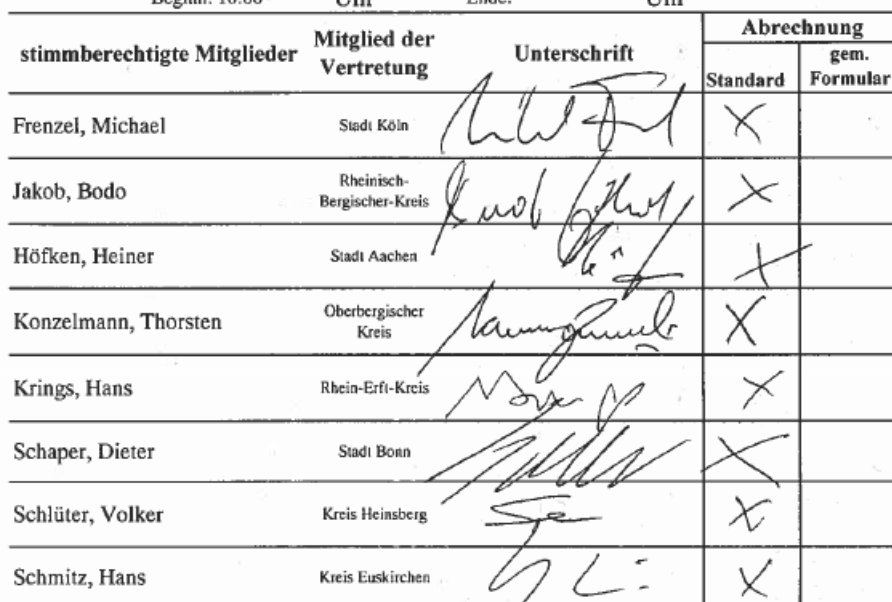 Beginn: 10.00 Uhr Ende: Uhr
Abrechnung
stimmberechtigte Mitglieder Mitglied der Vertretung Unterschrift Standard gem. Formular
Frenzel, Michael Stadt Köln X
Jakob, Bodo Rheinisch-Bergischer-Kreis X
Höfken, Heiner Stadt Aachen X
Konzelmann, Thorsten Oberbergischer Kreis X
Krings, Hans Rhein-Erft-Kreis X
Schaper, Dieter Stadt Bonn X
Schlüter, Volker Kreis Heinsberg X
Schmitz, Hans Kreis Euskirchen X